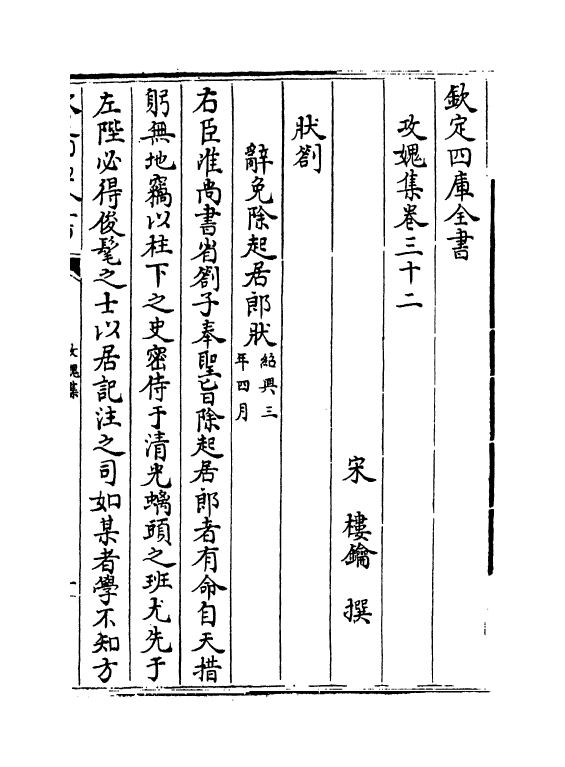 欽定四庫全書
攻媿集卷三十二
宋 樓鑰 撰
狀劄
辭免除起居郎狀 紹興三年四月
右臣准尚書省劄子奉聖旨除起居郎者有命自天措
躬無地竊以柱下之史密侍于清光螭頭之班尤先于
左陛必得俊髦之士以居記注之司如某者學不知方